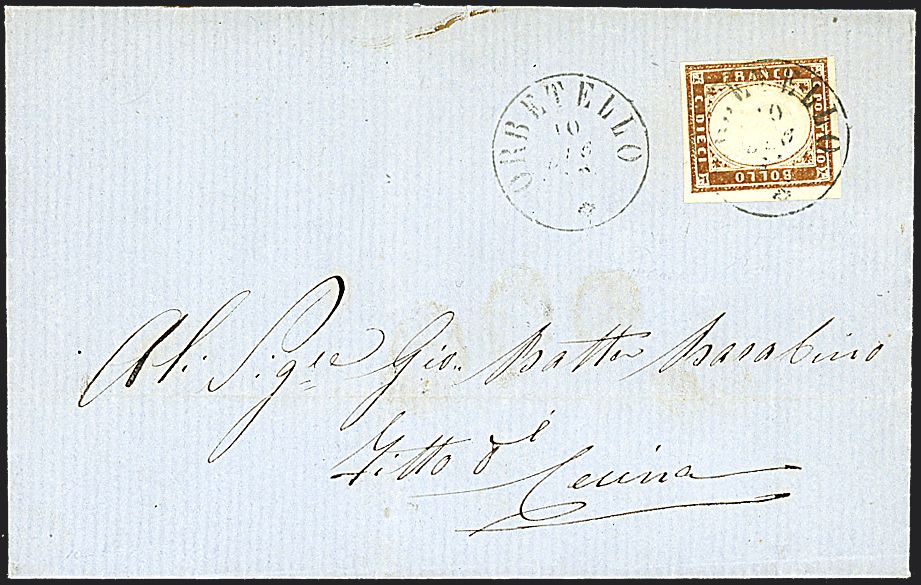 ORBETELLO
10
FRANCO
C. DIECI
POSTALE
BOLLO
Al. Sig.re Gio. Batta Barabino
Fitto di
Cecina